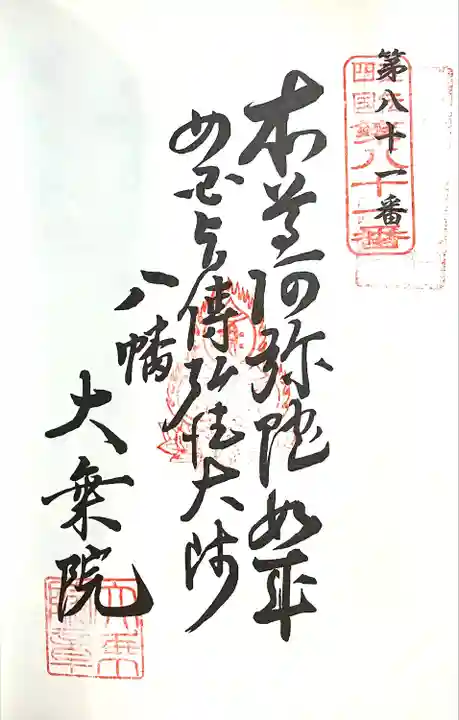 第八十一番
四国 八十一番
本尊阿弥陀如来
傳弘法大師
八幡
大乗院